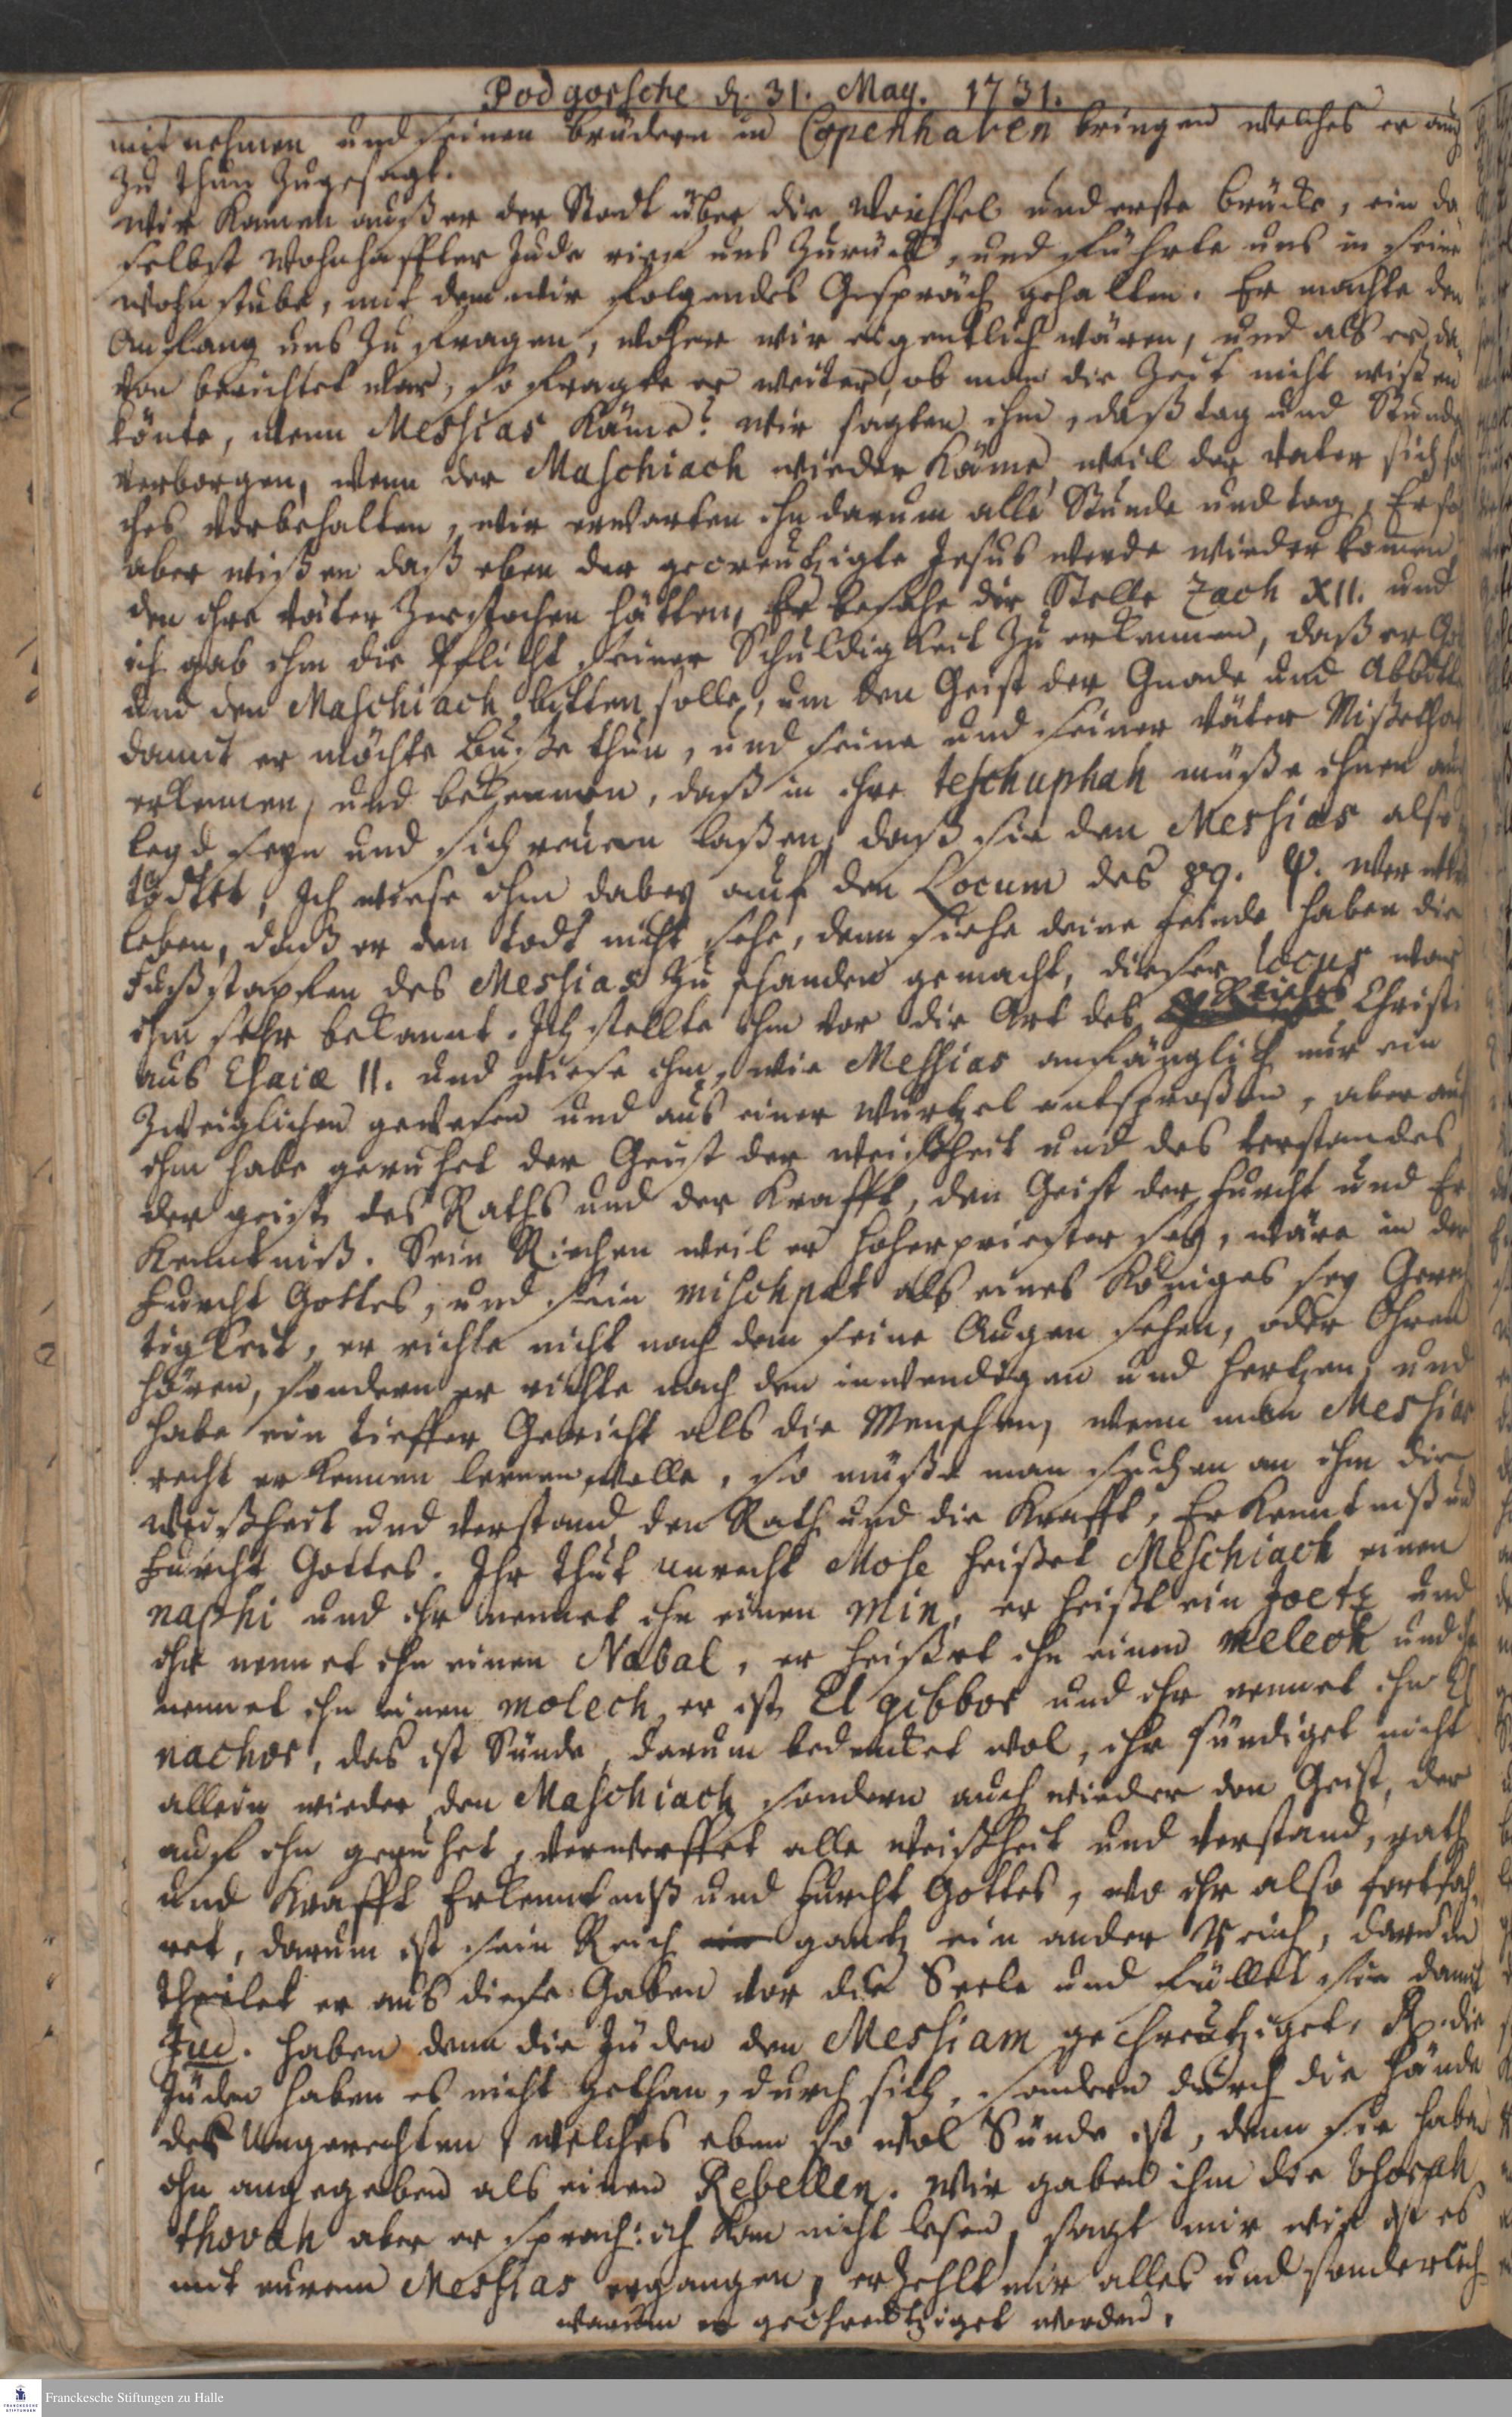 Podgorsche d. 31. May. 1731.
mit nehmen und seinen brüdern in Copenhaven bringen welches er auch
zu thun zugesagt.
Wir kamen außer der Stadt über die Weichsel und erste brücke, ein da
selbst wohnhaffter Jude rieff uns zurück, und führte uns in seine
wohnstube, mit dem wir folgendes Gespräch gehalten. Er machte den
Anfang uns zu fragen, woher wir eigentlich wären, und als er da
von berichtet war, so fragte er weiter, ob man die Zeit nicht wißen
könte, wenn Messias käme? wir sagten ihm, daß tag und Stunde
verborgen, wenn der Maschiach wieder käme, weil der Vater sich sol
ches vorbehalten, wir erwarten ihn darum alle Stunde und tag, Er sol
aber wißen daß eben der gecreutzigte Jesus werde wieder komen,
den ihre Väter zerstochen hätten, Er besahe die Stelle Zach XII. und
ich gab ihm die Pflicht seiner Schuldigkeit zu erkennen, daß er Gott
und den Maschiach bitten solle, um den Geist der Gnade und Abbitte
damit er möchte buße thun, und seine und seiner Väter Mißethat
erkennen, und bekennen, daß in ihre teschuphah müße ihnen auch
leyd seyn und sich reuen laßen, daß sie den Messias also
tödtet, Ich wiese ihm dabey auf den Locum des 89. Ψ. Wer will
leben, daß er den todt nicht sehe, denn siehe deine feinde haben die
Fußstapfen des Messias zu schanden gemacht, dieser locus war
ihm sehr bekannt. Ich stellte ihm vor die Art des Reiches Christi
aus Esaiæ 11. und wiese ihm, wie Messias anfänglich nur ein
Zweiglichen gewesen und aus einer Wurtzel entsproßen, aber auf
ihm habe geruhet der Geist der weißheit und des Verstandes,
der geist des Raths und der Krafft, den Geist der furcht und Er
kenntniß. Sein Riechen weil er hoherpriester sey, wäre in der
Furcht Gottes, und sein mischpat als eines Königes sey Gerech
tigkeit, er richte nicht nach dem seine Augen sehen, oder Ohren
hören, sondern er richte nach den inwendigen und hertzen, und
habe ein tieffer Gericht als die Menschen, wenn man Messias
recht erkennen lernen wolle, so müße man suchen an ihm die
Weißheit und Verstand, den Rath und die Krafft, Erkenntniß und
Furcht Gottes. Ihr thut unrecht Mose heißet Meschiach einen
naphi und ihr nennet ihn einen Min, er heißt ein Joetz und
ihr nennet ihn einen Nabal, er heißet ihn einen melech und ihr
nennet ihn einen molech, er ist El gibbor und ihr nennet ihn El
nachor, das ist Sünde, darum bedencket wol, ihr sündiget nicht
allein wieder den Maschiach sondern auch wieder den Geist, der
auf ihn geruhet, verwerffet alle Weißheit und Verstand, rath
und Krafft Erkenntniß und Furcht Gottes, wo ihr also fortfah,
ret, darum ist sein Reich gantz ein ander Reich, darinnen
theilet er aus diese Gaben vor die Seele und füllet sie damit
Jud. haben denn die Juden den Messiam gechreutziget, R. die
Juden haben es nicht gethan, durch sich, sondern durch die hände
der Ungerechten, welches eben so wol Sünde ist, denn sie haben
ihn angegeben als einen Rebellen. Wir gaben ihm die
thorah aber er sprach: ich kan nicht lesen, sagt mir wie ist es
mit eurem Messias ergangen, erzehlt mir alles und sonderlich
warum er gechreutziget worden.
Franckesche Stiftungen zu Halle